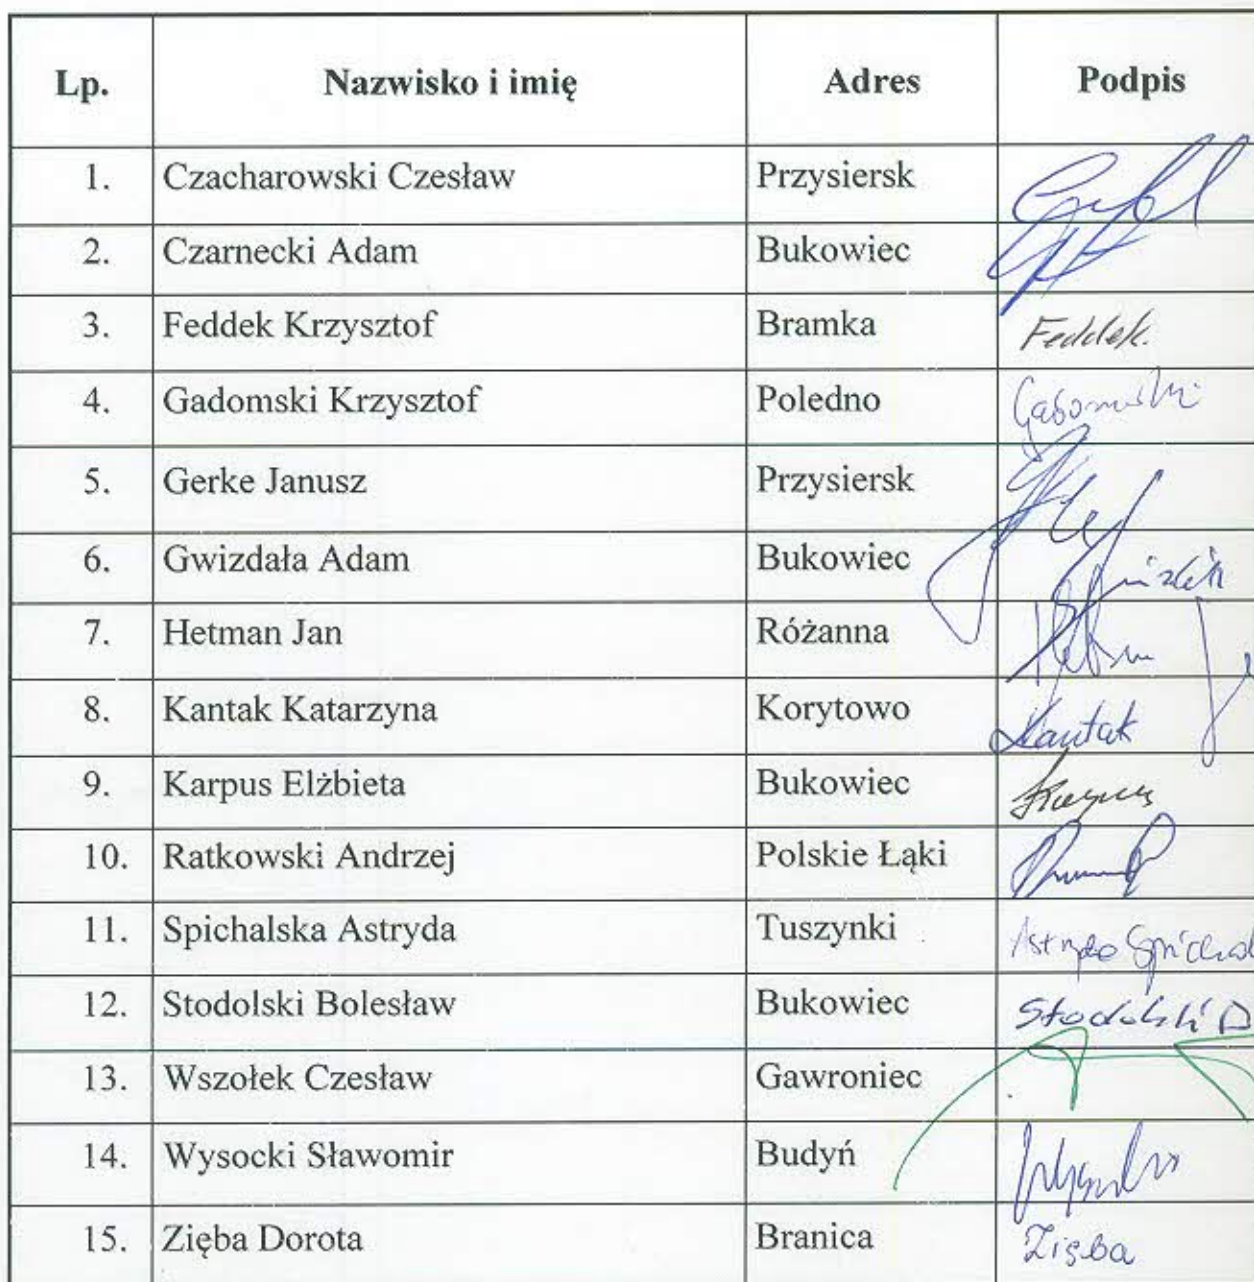 Lp. Nazwisko i imię Adres Podpis
1. Czacharowski Czesław Przysiersk
2. Czarnecki Adam Bukowiec
3. Feddek Krzysztof Bramka Feddek.
4. Gadomski Krzysztof Poledno Gadomski
5. Gerke Janusz Przysiersk
6. Gwizdała Adam Bukowiec
7. Hetman Jan Różanna
8. Kantak Katarzyna Korytowo Kantak
9. Karpus Elżbieta Bukowiec Karpus
10. Ratkowski Andrzej Polskie Łąki
11. Spichalska Astryda Tuszynki Astryda
12. Stodolski Bolesław Bukowiec Stodolski
13. Wszołek Czesław Gawroniec
14. Wysocki Sławomir Budyń
15. Zięba Dorota Branica Zięba